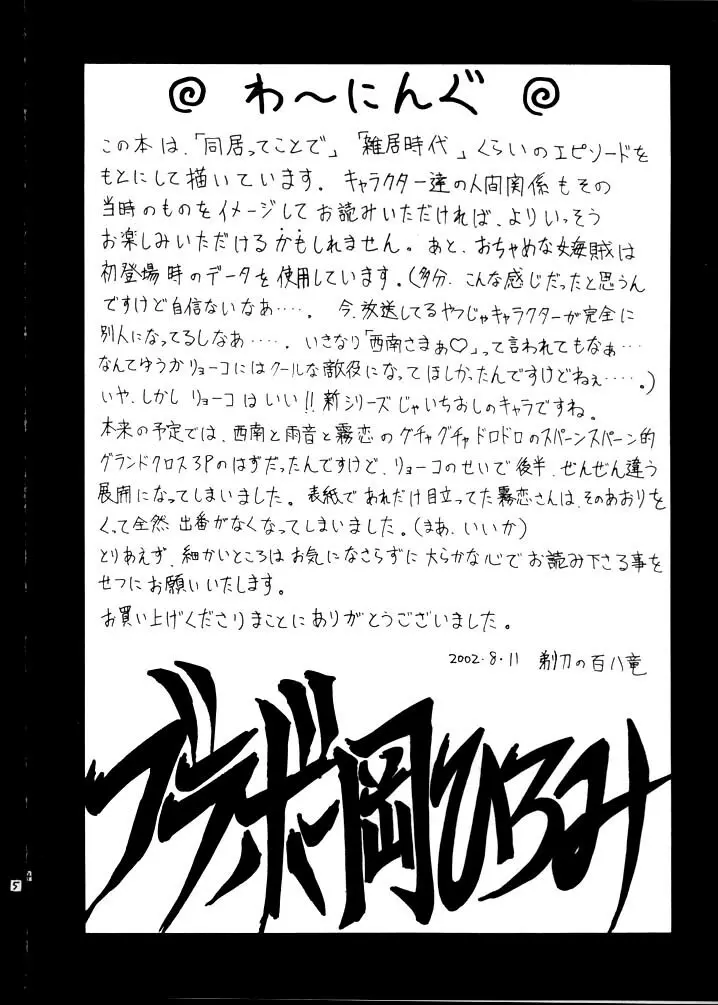 わ〜にんぐ
この本は、「同居ってことで」「雑居時代」くらいのエピソードを
もとにして描いています。キャラクター達の人間関係もその
当時のものをイメージしてお読みいただければ、よりいっそう
お楽しみいただけるかもしれません。あと、おちゃめな女海賊は
初登場時のデータを使用しています。(多分、こんな感じだったと思うん
ですけど自信ないなぁ‥‥。今、放送してるやつじゃキャラクターが完全に
別人になってるしなぁ‥‥。いきなり「西南さまぁ♡」って言われてもなぁ…
なんてゆうかリョーコにはクールな敵役になってほしかったんですけどねぇ‥‥。)
いや、しかしリョーコはいい!!新シリーズじゃいちおしのキャラですね。
本来の予定では、西南と雨音と霧恋のグチャグチャドロドロのスパーンスパーン的
グランドクロス3Pのはずだったんですけど、リョーコのせいで後半、ぜんぜん違う
展開になってしまいました。表紙であれだけ目立ってた霧恋さんは、そのあおりを
くって全然出番がなくなってしまいました。(まぁ、いいか)
とりあえず、細かいところはお気になさらずに大らかな心でお読み下さる事を
せつにお願いいたします。
お買い上げくださりまことにありがとうございました。
2002.8.11 剃刀の百八竜
ブラボー岡ひろみ
5